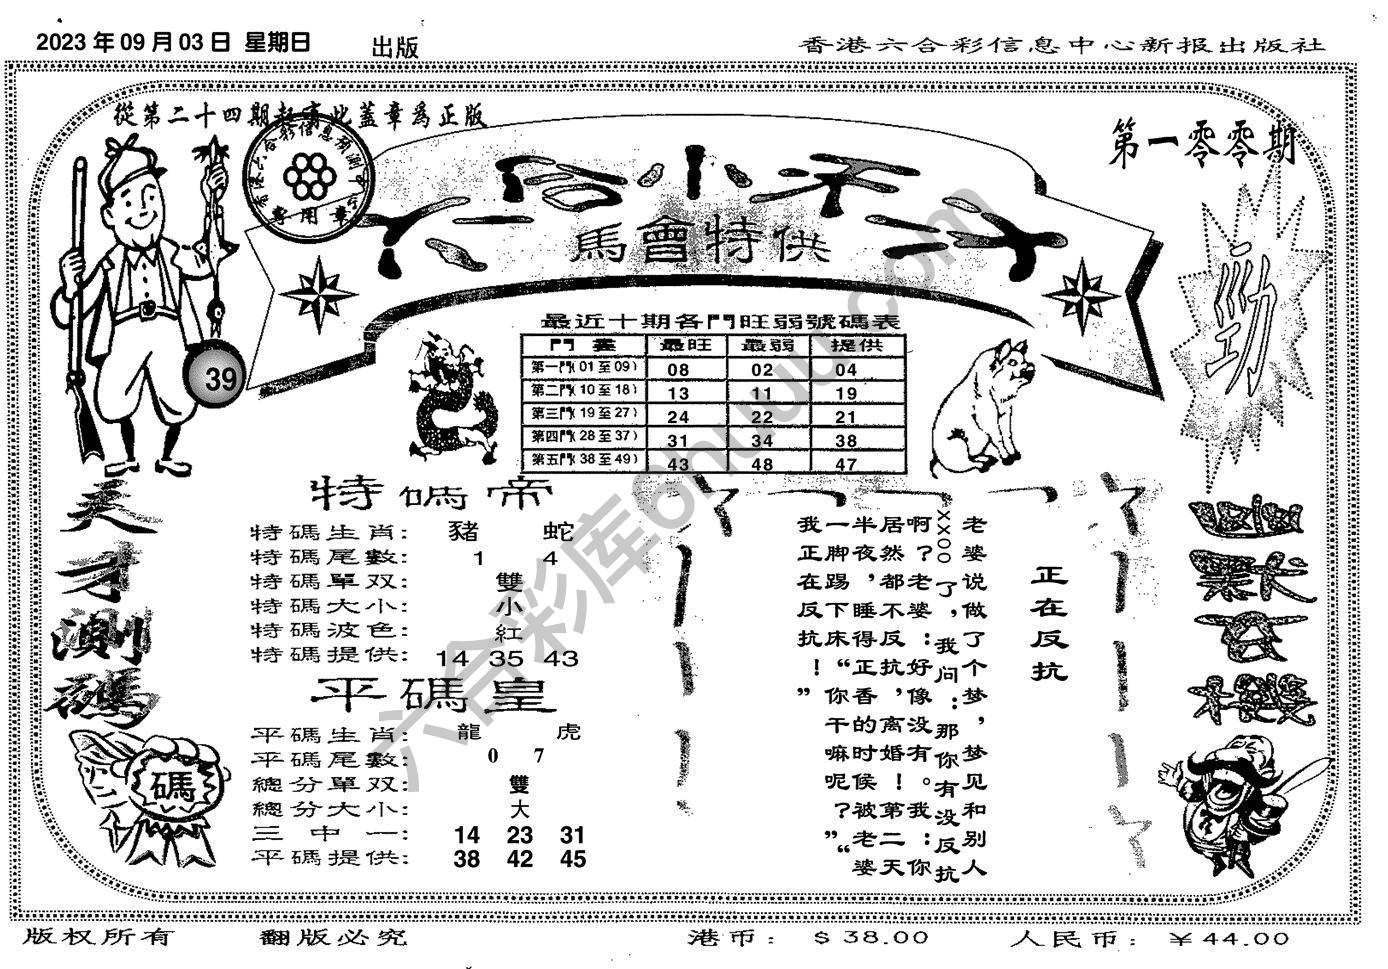 2023 年 09 月 03 日 星期日 出版
香港六合彩信息中心新报出版社
從第二十四期起蓋此蓋章爲正版
第一零零期
馬會特供
勁
39
最近十期各門旺弱號碼表
最旺 最弱 提供
第一門(01至09) 08 02 04
第二門(10至18) 13 11 19
第三門(19至27) 24 22 21
第四門(28至37) 31 34 38
第五門(38至49) 43 48 47
天才測碼
碼
特碼帝
特碼生肖: 豬 蛇
特碼尾數: 1 4
特碼單双: 雙
特碼大小: 小
特碼波色: 紅
特碼提供: 14 35 43
平碼皇
平碼生肖: 龍 虎
平碼尾數: 0 7
總分單双: 雙
總分大小: 大
三中一: 14 23 31
平碼提供: 38 42 45
正在反抗
老婆说做了个梦，梦见和别人
XXOO了，我问：那你有没反抗
啊？老婆：好像没有。我：你
居然都不反抗，离婚！第二天
半夜，睡得正香的时候被老婆
一脚踢下床“你干嘛呢？”“
我正在反抗！”
幽默玄機
六合彩库6huuu.com
版权所有 翻版必究 港币：$38.00 人民币：￥44.00